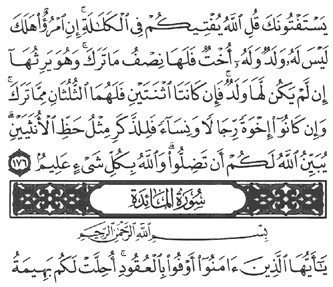 يَسْتَفْتُونَكَ قُلِ اللَّهُ يُفْتِيكُمْ فِي الْكَلَالَةِ ۚ إِنِ امْرُؤٌا هَلَكَ
لَيْسَ لَهُ وَلَدٌ وَلَهُ أُخْتٌ فَلَهَا نِصْفُ مَا تَرَكَ ۚ وَهُوَ يَرِثُهَا
إِن لَّمْ يَكُن لَّهَا وَلَدٌ ۚ فَإِن كَانَتَا اثْنَتَيْنِ فَلَهُمَا الثُّلُثَانِ مِمَّا تَرَكَ ۚ
وَإِن كَانُوا إِخْوَةً رِّجَالًا وَنِسَاءً فَلِلذَّكَرِ مِثْلُ حَظِّ الْأُنثَيَيْنِ ۗ
يُبَيِّنُ اللَّهُ لَكُمْ أَن تَضِلُّوا ۗ وَاللَّهُ بِكُلِّ شَيْءٍ عَلِيمٌ ١٧٦
سُورَةُ الْمَائِدَةِ
بِسْمِ اللَّهِ الرَّحْمَٰنِ الرَّحِيمِ
يَا أَيُّهَا الَّذِينَ ءَامَنُوا أَوْفُوا بِالْعُقُودِ ۚ أُحِلَّتْ لَكُم بَهِيمَةُ